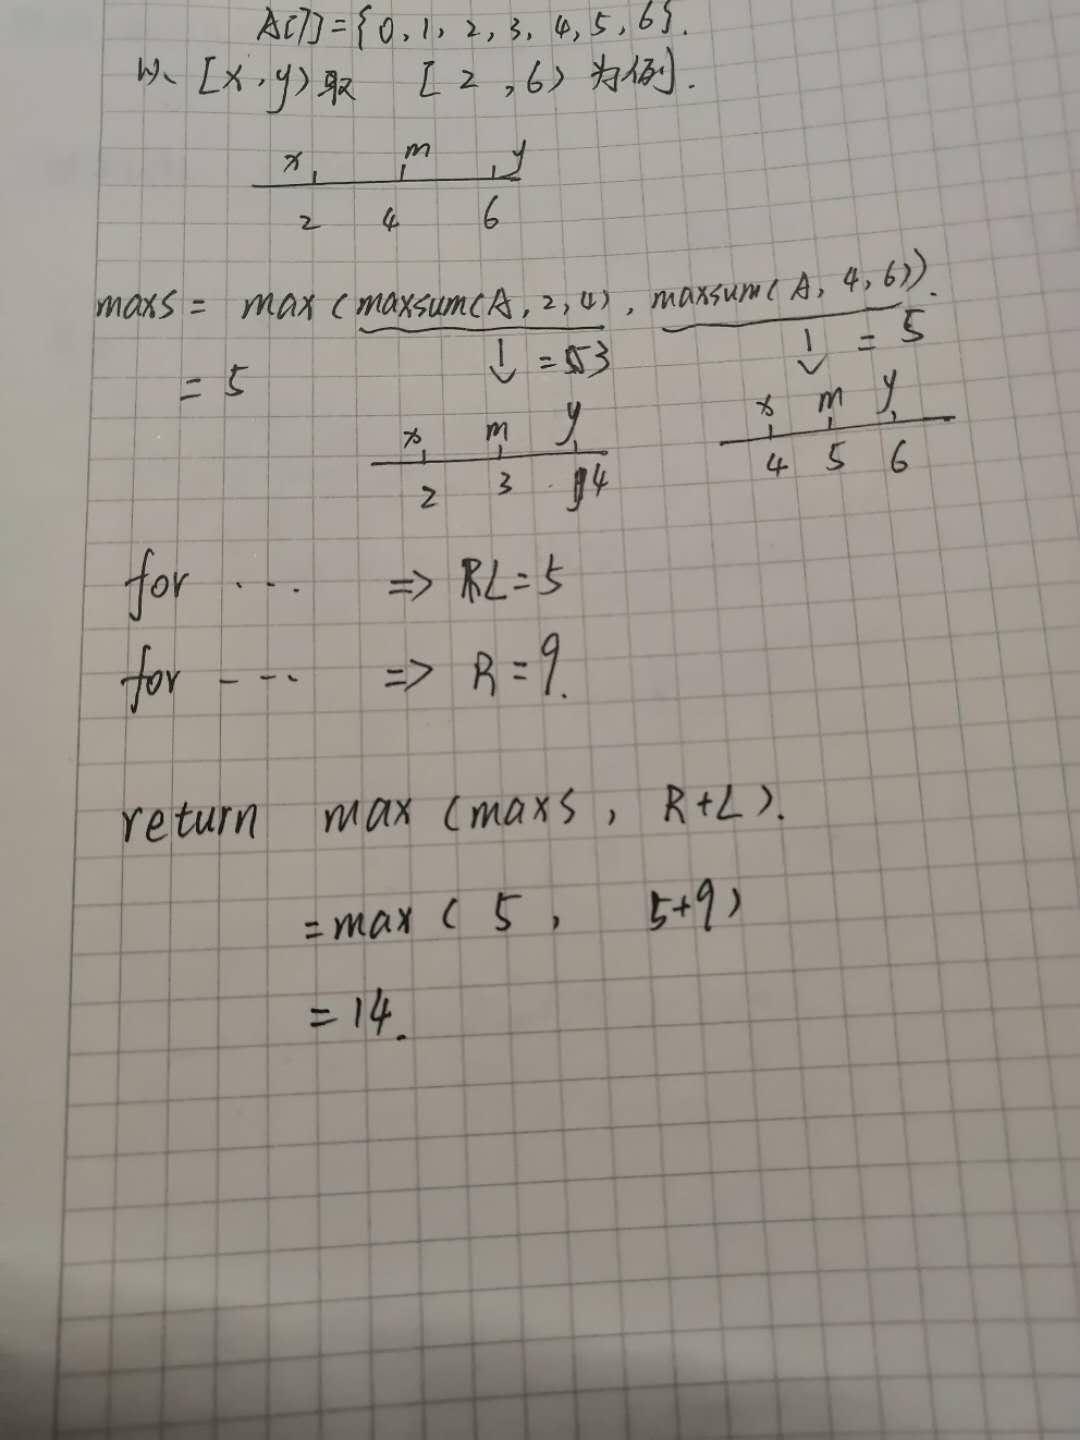 A[7]={0,1,2,3,4,5,6}.
以 [x,y) 取 [2,6) 为例.
x m y
2 4 6
maxs = max (maxsum(A,2,4), maxsum(A,4,6)).
= 5 ↓ =3 ↓ = 5
x m y x m y
2 3 4 4 5 6
for ... => L=5
for ---- => R=9.
return max (maxs, R+L).
=max ( 5, 5+9)
=14.